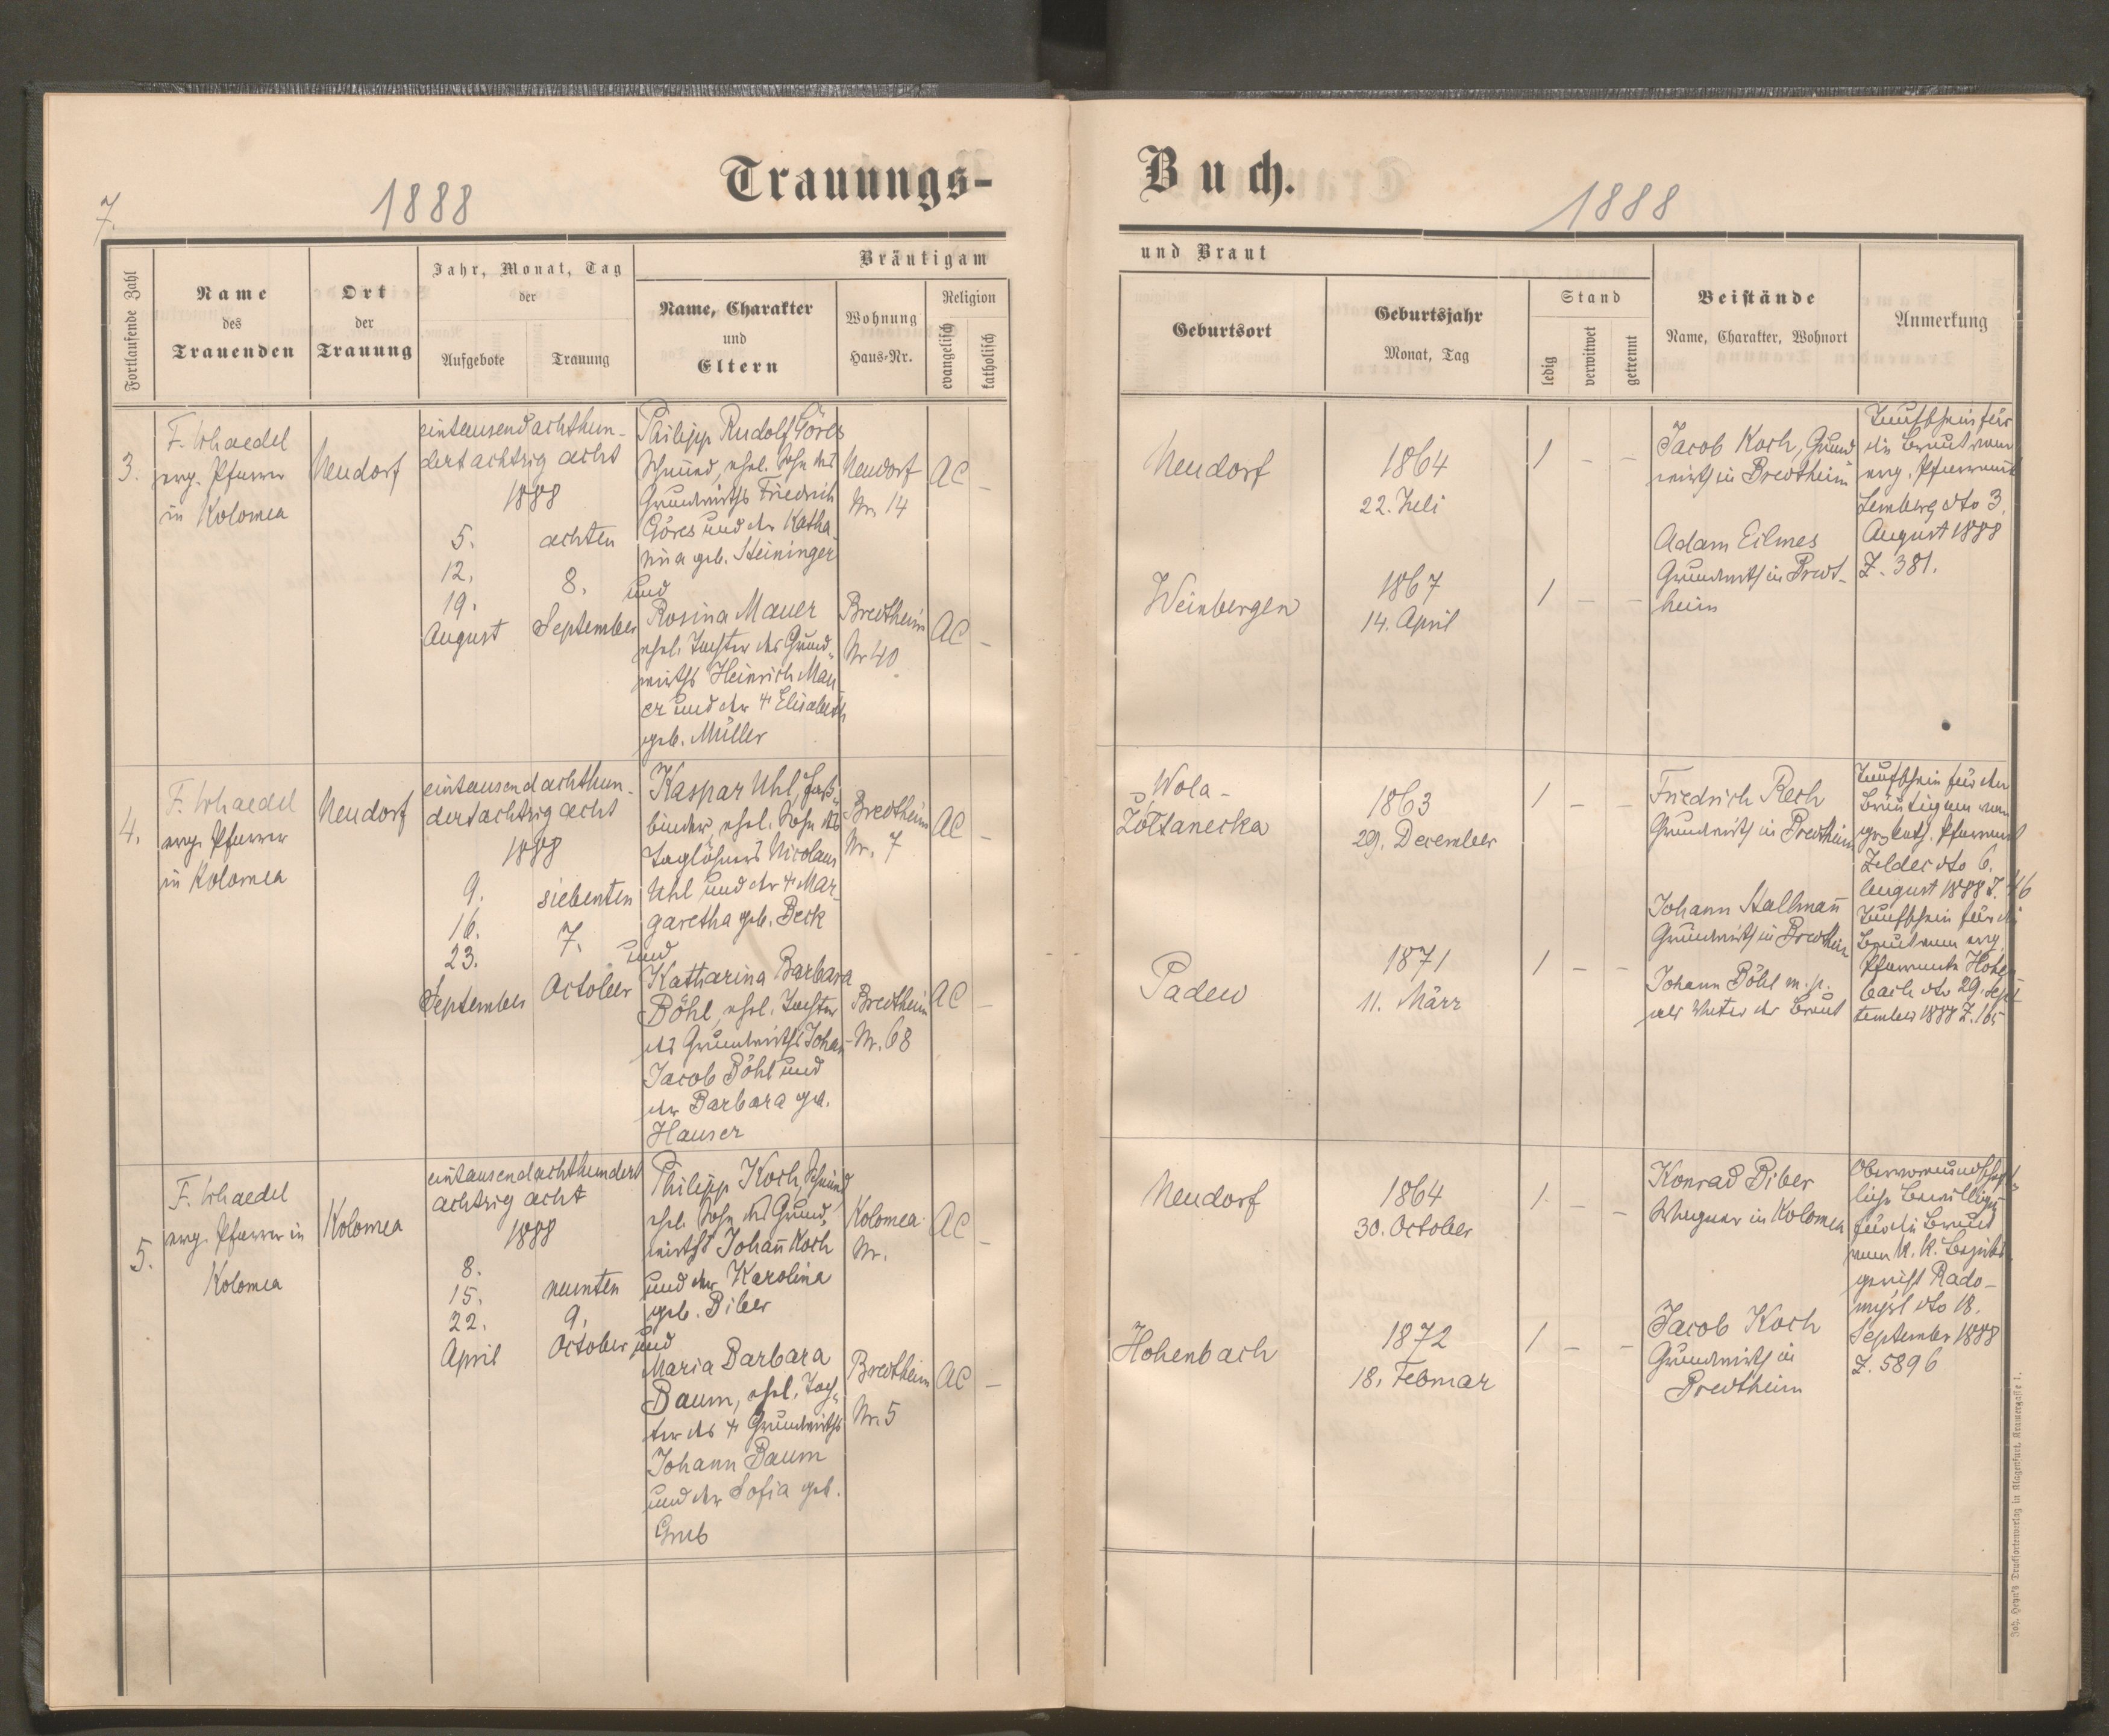 7.
1888
Trauungs-
Buch.
1888
Fortlaufende Zahl
Name
des
Trauenden
Ort
der
Trauung
Jahr, Monat, Tag
der
Aufgebote
Trauung
Bräutigam
Name, Charakter
und
Eltern
Wohnung
Haus-Nr.
Religion
evangelisch
katholisch
und Braut
Geburtsort
Geburtsjahr
Monat, Tag
Stand
ledig
verwitwet
getrennt
Beistände
Name, Charakter, Wohnort
Anmerkung
3.
evg. Pfarrer
in Kolomea
Neudorf
eintausendachthun-
dertachtzig acht
1888
5.
12.
19.
August
achten
8.
September
Philipp Rudolf Göres
Schmied, ehel. Sohn des
Grundwirths Friedrich
Göres und der Katha-
rina geb. Steininger
und
Rosina Mauer
ehel. Tochter des Grund-
wirths Heinrich Mau-
er und der + Elisabeth
geb. Müller
Neudorf
Nr. 14
AC –
Bredtheim
Nr 40
AC –
Neudorf
1864
22. Juli
1 – –
Weinbergen
1867
14. April
1 – –
Jacob Koch, Grund
wirth in Bredtheim
Adam Eilmes
Grundwirth in Bredt-
heim
Taufschein für
die Braut vom
evg. Pfarramt
Lemberg dto 3.
August 1888
Z. 381.
4.
evg. Pfarrer
in Kolomea
Neudorf
eintausendachthun-
dertachtzig acht
1888
9.
16.
23.
September
siebenten
7.
October
Kaspar Uhl, Faß-
binder, ehel. Sohn des
Taglöhners Nicolaus
Uhl und der + Mar-
garetha geb. Beck
und
Katharina Barbara
Böhl, ehel. Tochter
des Grundwirths Johan
Jacob Böhl und
der Barbara geb.
Hauser
Bredtheim
Nr. 7
AC –
Bredtheim
Nr. 68
AC –
Wola-
Żółtanecka
1863
29. December
1 – –
Padew
1871
11. März
1 – –
Friedrich Rech
Grundwirth in Bredtheim
Johann Hallman̄
Grundwirth in Bredtheim
Johann Böhl m. p.
als Vater der Braut
Taufschein für den
Bräutigam vom
Pfarramt
dto 6.
August 1888 Z. 46
Taufschein für die
Braut vom evg.
Pfarramte Hohen-
bach dto 29. Sept-
tember 1888 Z. 165
5.
evg. Pfarrer in
Kolomea
Kolomea
eintausendachthundert
achtzig acht
1888
8.
15.
22.
April
neunten
9.
October
Philipp Koch, Schmied
ehel. Sohn des Grund-
wirths Johan̄ Koch
und der Karolina
geb. Biber
und
Maria Barbara
Baum, ehel. Toch-
ter des + Grundwirths
Johann Baum
und der Sofia geb.
Grub
Kolomea
Nr.
AC –
Bredtheim
Nr. 5
AC –
Neudorf
1864
30. October
1 – –
Hohenbach
1872
18. Februar
1 – –
Konrad Biber
Wagner in Kolomea
Jacob Koch
Grundwirth in
Bredtheim
Obervormundschaft-
liche Bewilligung
für die Braut
vom K. K. Bezirks-
gericht Rado-
myśl dto 18.
September 1888
Z. 5896
Joh. Heyn's Drucksortenverlag in Klagenfurt,